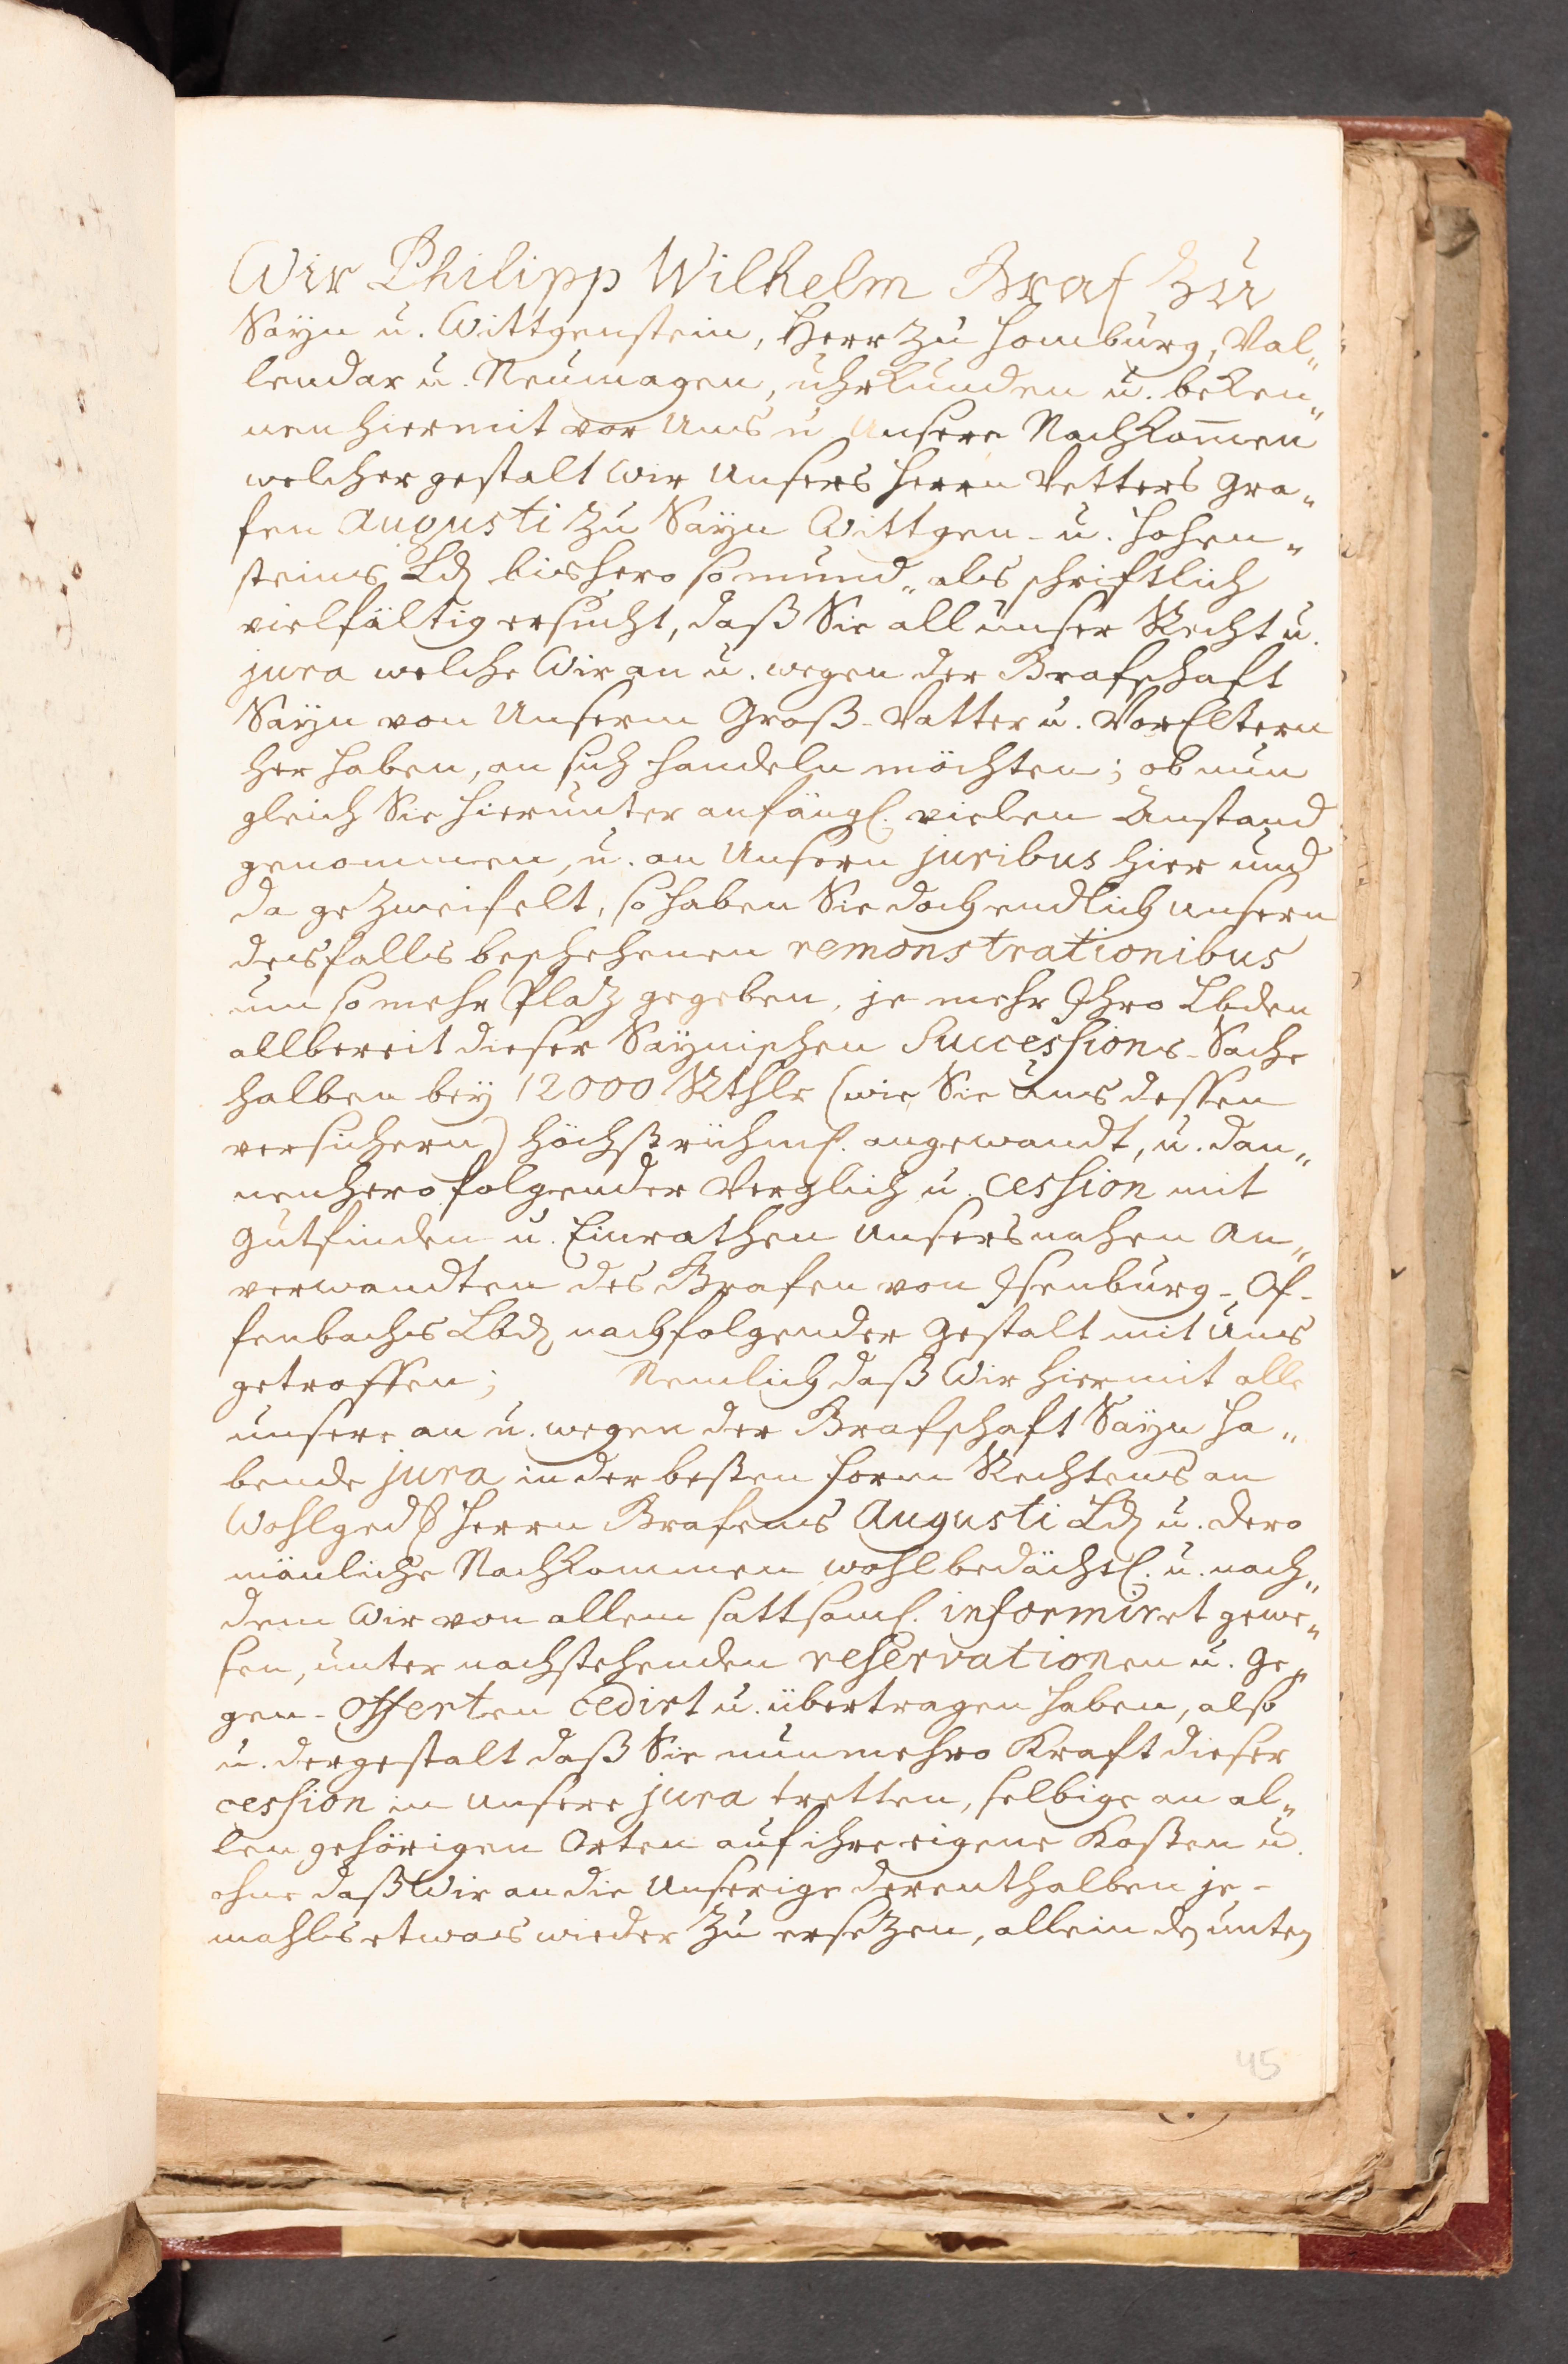 Wir Philipp Wilhelm Graf zu
Sayn u. Wittgenstein, Herr zu Homburg, Val„
lendar u. Neumagen, uhrkunden u. beken„
nen hiermit vor Uns u Unsere Nachkom̅en
welcher gestalt Wir Unsers Herrn Vetters Gra„
fen Augusti zu Sayn Wittgen- u. Hohen„
steins Ld bishero so mund„ als schriftlich
vielfältig ersucht, daß Sie all unser Recht u.
jura welche Wir an u. wegen der Grafschaft
Sayn von Unserm Groß-Vatter u. VorEltern
her haben, an sich handeln möchten; ob nun
gleich Sie hierunter anfängl. vielen Anstand
genommen, u. an Unsern juribus hier und
da gezweifelt, so haben Sie doch endlich unsern
desfalls beschehenen remonstrationibus
um so mehr Platz gegeben, je mehr Ihro Lbden
allbereit dieser Saynischen Successions-Sache
halben bey 12000 Rthlr (wie Sie Uns dessen
versichern) höchst rühml. angewandt, u. dan„
nenhero folgender Verglich u. cession mit
gutfinden u. Einrathen Unsers nahen An„
verwandten des Grafen von Isenburg-Of-
fenbachs Lbd nachfolgender gestalt mit Uns
getroffen; Nemlich daß Wir hiermit alle
unsere an u. wegen der Grafschaft Sayn ha„
bende jura in der besten form Rechtens an
Wohlged Herrn Grafens Augusti Ld u. dero
mänliche Nachkommen wohlbedächtl. u. nach„
dem Wir von allem sattsaml. informiret gewe„
sen, unter nachstehenden reservationen u. ge„
gen-offerten cedirt u. übertragen haben, also
u. dergestalt daß Sie nunmehro Kraft dieser
cession in unsere jura tretten, selbige an al„
len gehörigen Orten auf ihre eigene Kosten u.
ohne daß Wir an die Unserige derenthalben je-
mahls etwas wieder zu ersetzen, allein de unten
45